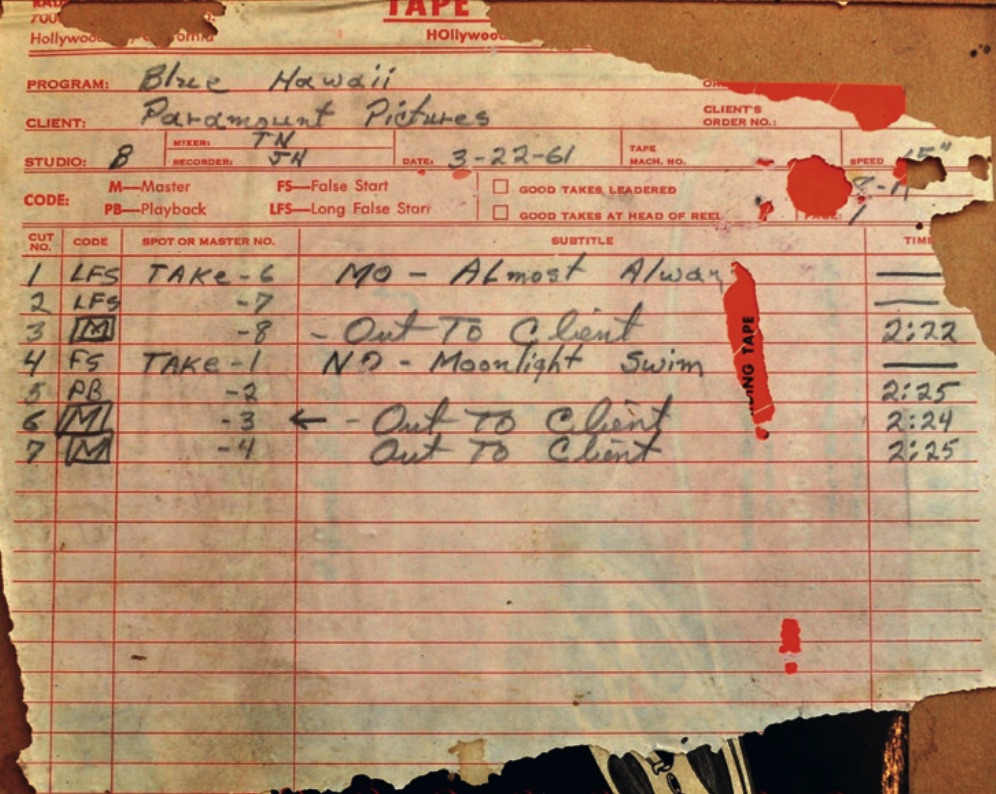 TAPE
Hollywood, California HOllywood
PROGRAM: Blue Hawaii
CLIENT: Paramount Pictures
CLIENT'S
ORDER NO.:
STUDIO: B MIXER: TN RECORDER: JH DATE: 3-22-61 TAPE MACH. NO. SPEED 15"
CODE: M—Master FS—False Start GOOD TAKES LEADERED
PB—Playback LFS—Long False Start GOOD TAKES AT HEAD OF REEL PAGE: 1
CUT NO. CODE SPOT OR MASTER NO. SUBTITLE TIME
1 LFS TAKE-6 MO - ALmost Alway
2 LFS -7
3 M -8 - Out To Client 2:22
4 FS TAKE-1 NO - Moonlight Swim
5 PB -2 2:25
6 M -3 ← - Out To Client 2:24
7 M -4 Out To Client 2:25
ING TAPE